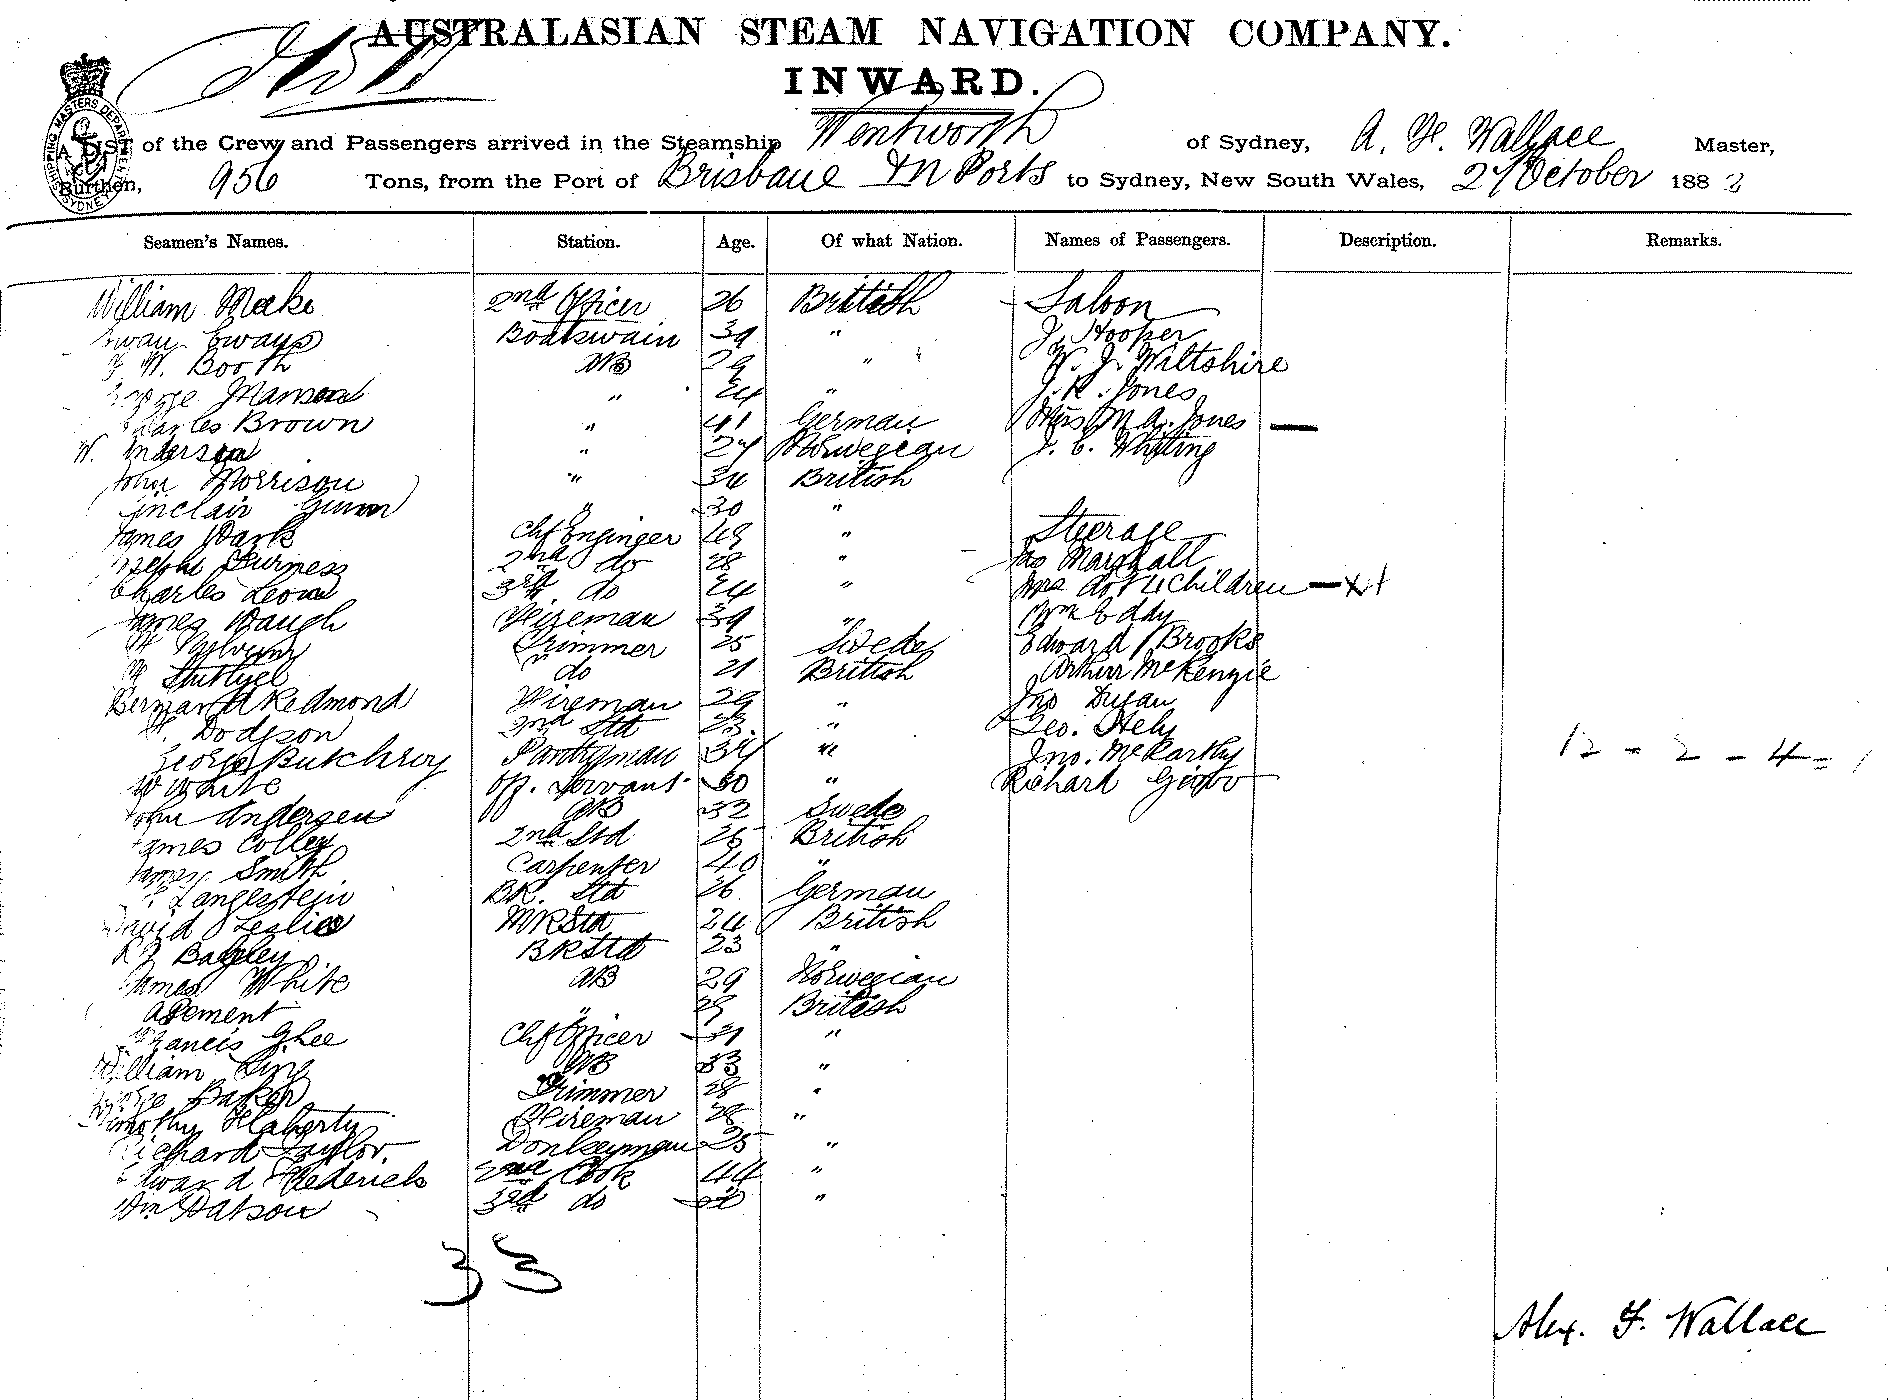 AUSTRALASIAN STEAM NAVIGATION COMPANY.
INWARD.
A LIST of the Crew and Passengers arrived in the Steamship Wentworth of Sydney, A. F. Wallace Master,
Burthen, 956 Tons, from the Port of Brisbane & N Ports to Sydney, New South Wales, 27 October 188
Seamen's Names. Station. Age. Of what Nation. Names of Passengers. Description. Remarks.
William Meeke 2nd Officer 26 British Saloon
Evan Evans Boatswain 39 " J. Hooper
W. Booth AB 29 " W. J. Wiltshire
George " 24 " J. R. Jones
Charles Brown " 41 German Miss M. A. Jones —
W. Anderson " 27 Norwegian J. C. Whiting
John Morrison " 34 British
Sinclair Gunn " 30 "
James Park Chf Engineer 49 " Steerage
Joseph Furness 2nd do 28 " Jas Marshall
Charles Leon 3rd do 24 " Mrs do & 4 Children — x +
James Waugh Fireman 39 " Wm Eddy
Trimmer 25 Swede Edward Brooks
do 21 British Arthur McKenzie
Bernard Redmond Fireman 29 " Jno Dugan
Dodgson 2nd Std 23 " Geo. Hely
George Butchroy Pantryman 37 " Jno. McCarthy
W White Off. Servant 30 " Richard
John Andersen AB 32 Swede
James Colley 2nd Std 25 British
James Smith Carpenter 40 "
Langestein BR. Std 26 German
David Leslie MR Std 24 British
Bagley BR Std 23 "
James White AB 29 Norwegian
A Pement " 29 British
Francis Ghee Chf Officer 31 "
William King AB 33 "
George Baker Trimmer 28 "
Timothy Flaherty Fireman 28 "
Richard Taylor. Donkeyman 25 "
Edward Frederick 2nd Cook 44 "
Wm Datson 3rd do 20 "
12 - 2 - 4 =
33
Alex. F. Wallace